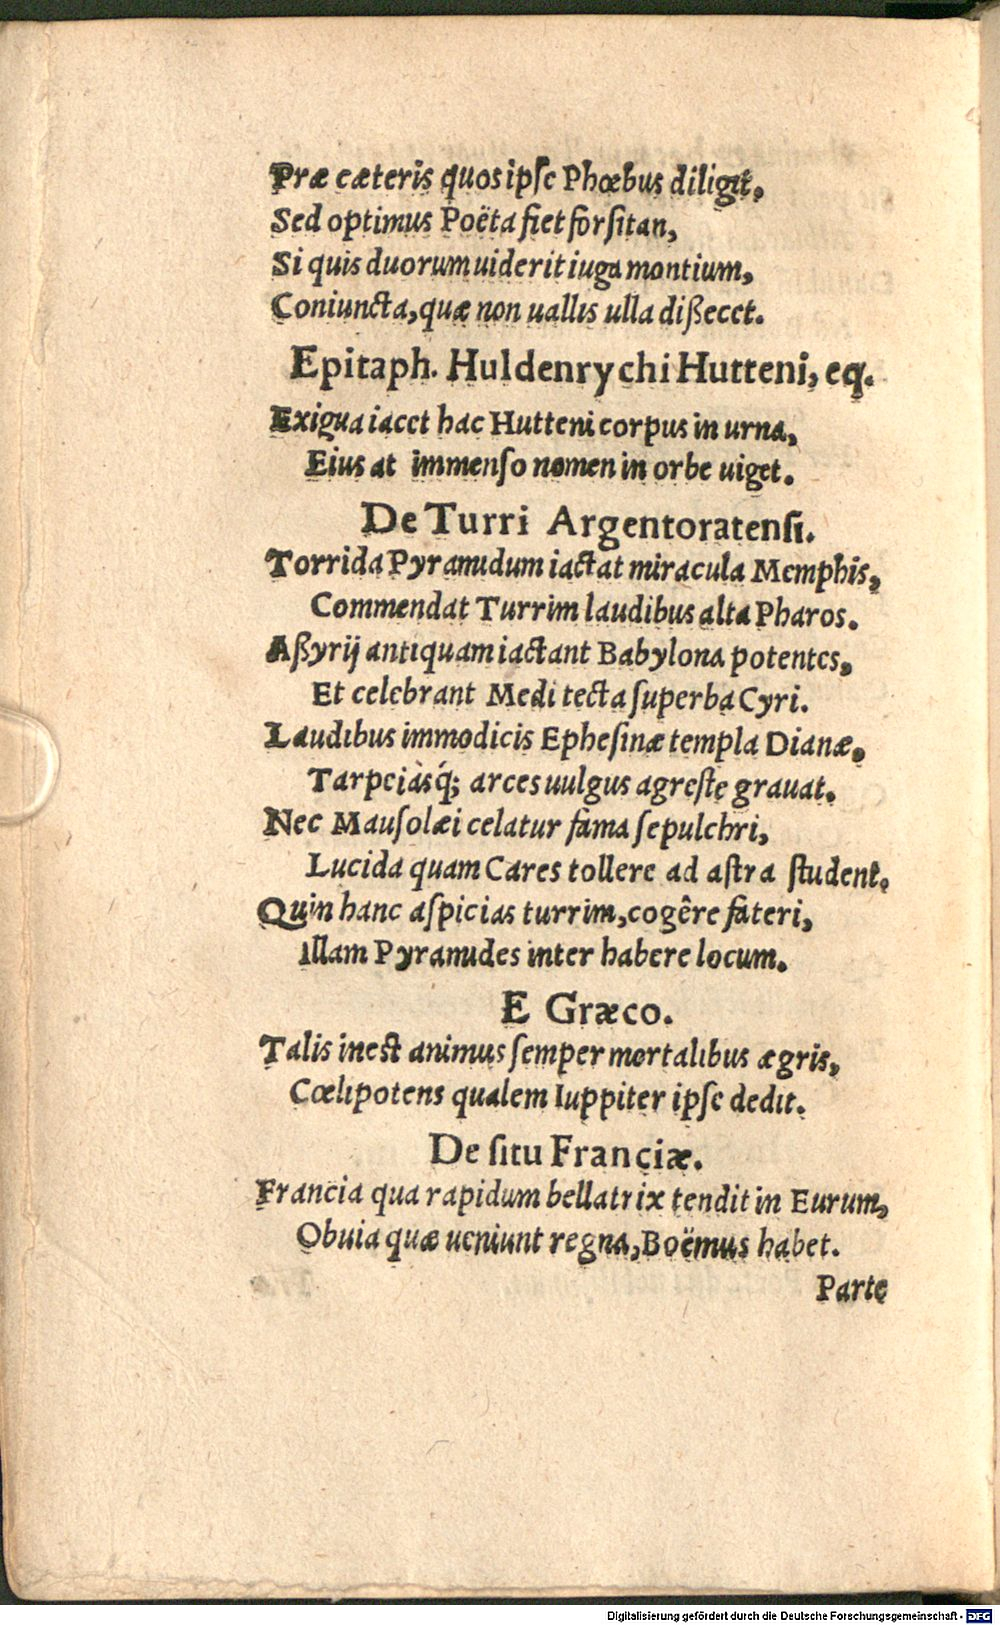 Præ cæteris quos ipſe Phœbus diligit,
Sed optimus Poëta fiet forſitan,
Si quis duorum uiderit iuga montium,
Coniuncta, quæ non uallis ulla dißecet.
Epitaph. Huldenrychi Hutteni, eq.
Exigua iacet hac Hutteni corpus in urna,
Eius at immenſo nomen in orbe uiget.
De Turri Argentoratenſi.
Torrida Pyramidum iactat miracula Memphis,
Commendat Turrim laudibus alta Pharos.
Aßyrij antiquam iactant Babylona potentes,
Et celebrant Medi tecta ſuperba Cyri.
Laudibus immodicis Epheſinæ templa Dianæ,
Tarpeiàsq́; arces uulgus agreſte grauat.
Nec Mauſolæi celatur fama ſepulchri,
Lucida quam Cares tollere ad aſtra ſtudent.
Quin hanc aſpicias turrim, cogêre fateri,
Illam Pyramides inter habere locum.
E Græco.
Talis ineſt animus ſemper mortalibus ægris,
Cœlipotens qualem Iuppiter ipſe dedit.
De ſitu Franciæ.
Francia qua rapidum bellatrix tendit in Eurum,
Obuia quæ ueniunt regna, Boëmus habet.
Parte
Digitalisierung gefördert durch die Deutsche Forschungsgemeinschaft - DFG